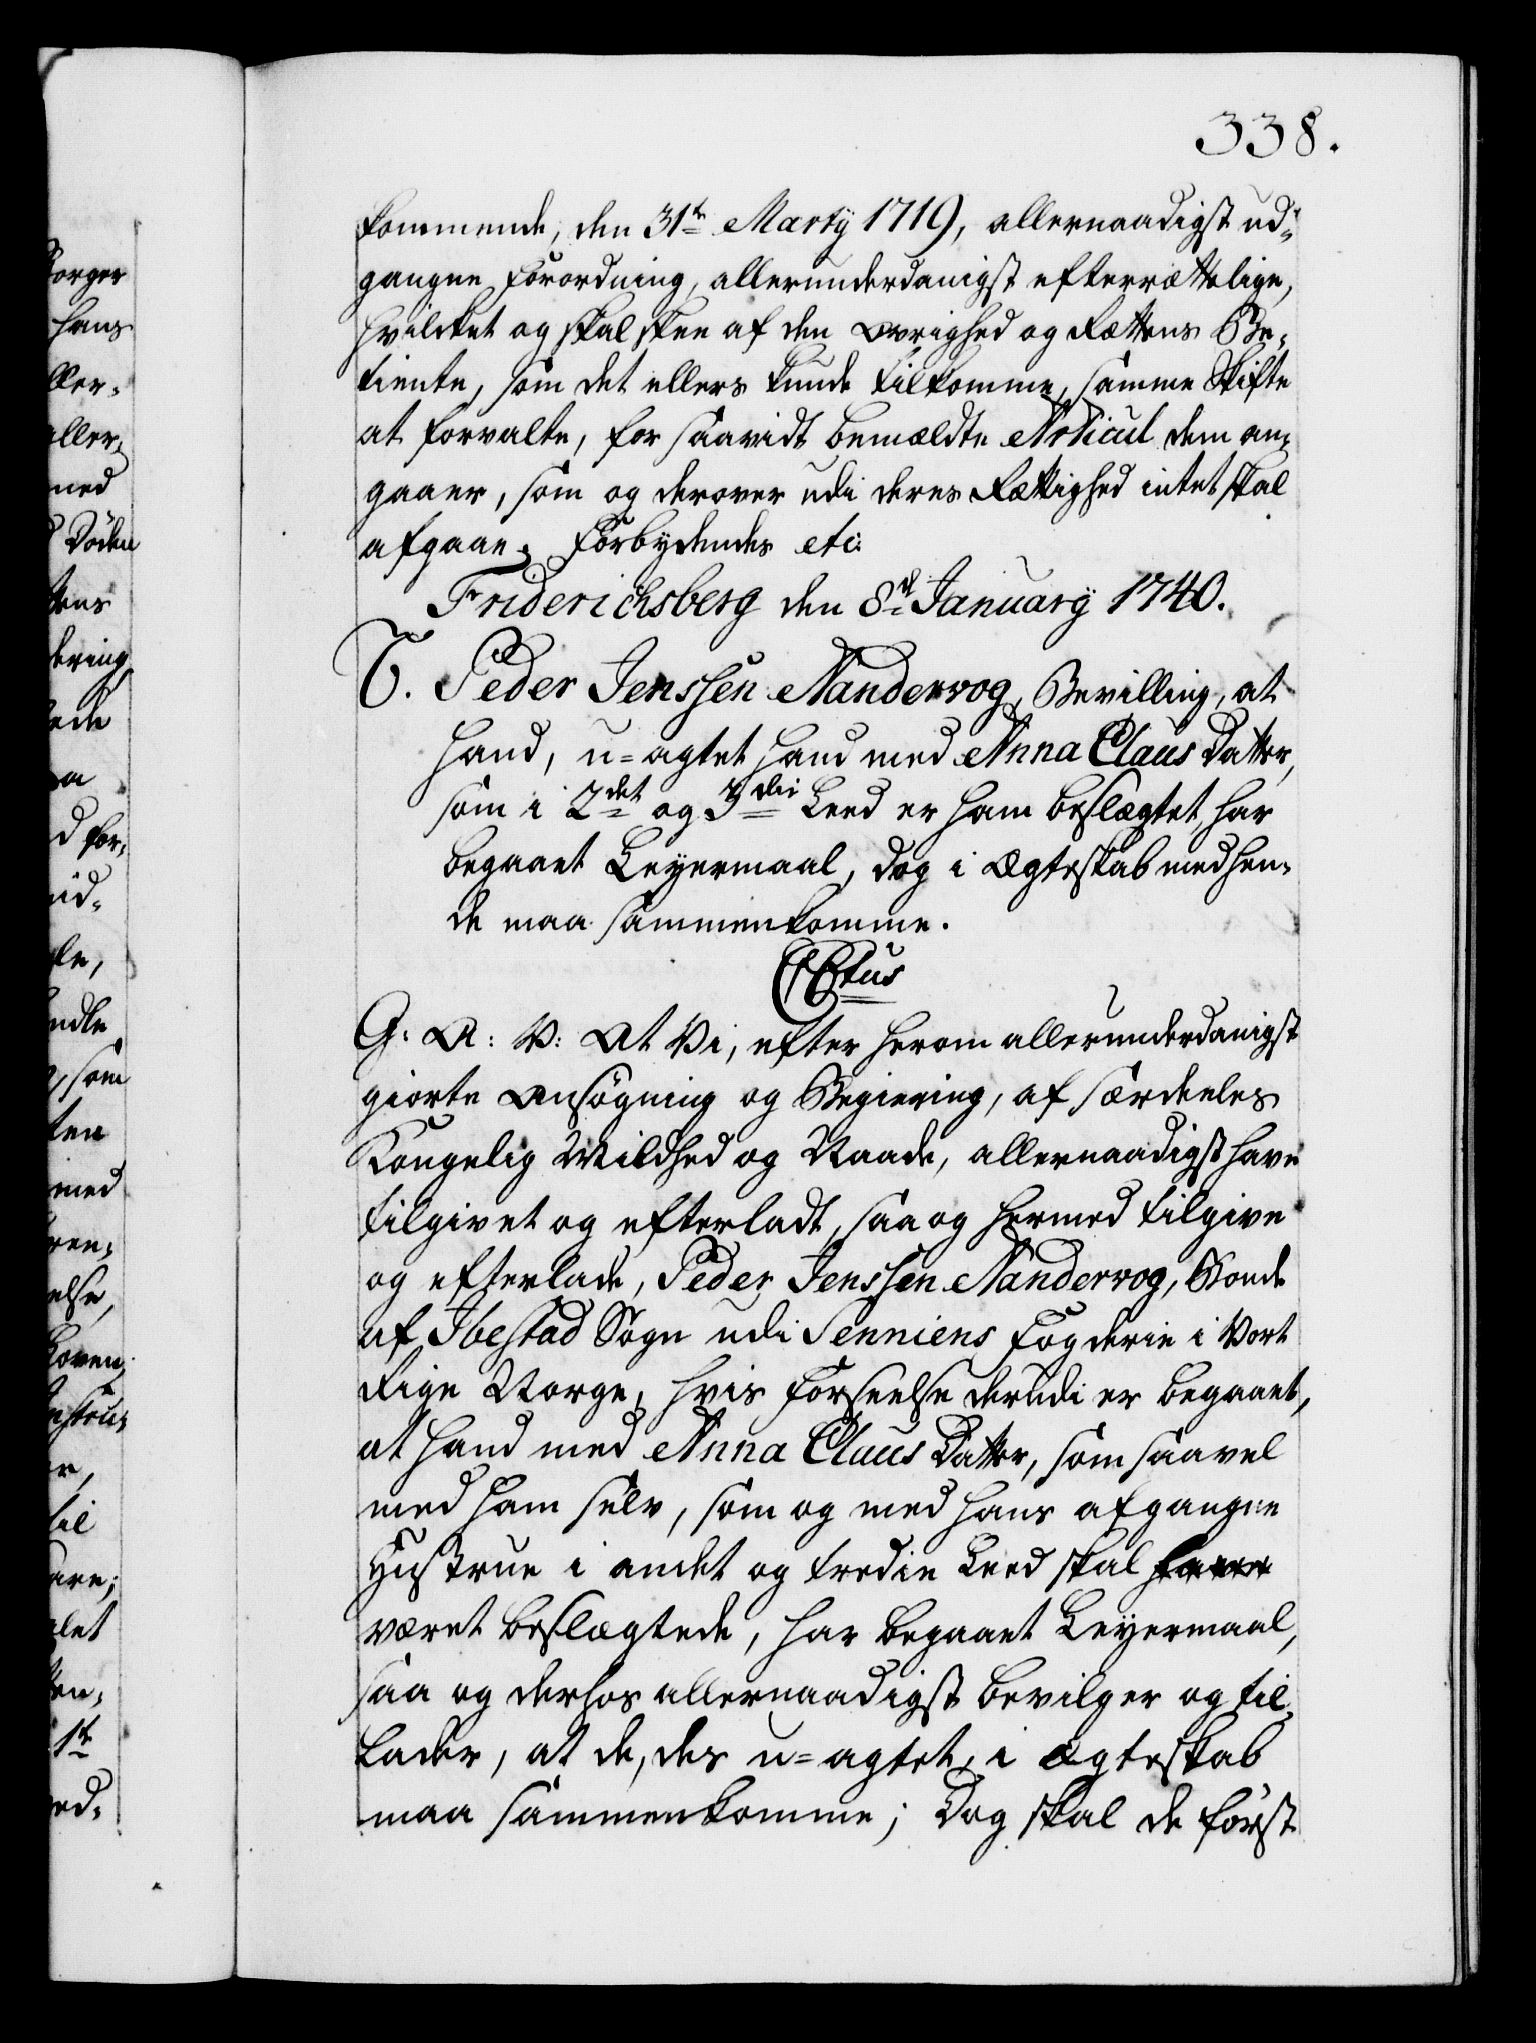 338.
kommende, den 31te Marty 1719, allernaadigst ud-
gangne Forordning, allerunderdanigst efterrettelige,
hvilcket og skal skee af den Øvrighed og Rettens Be-
tiente, som det ellers kunde tilkomme, samme Skifte
at forvalte, for saavidt bemældte Articul dem an-
gaaer, som og derover udi deres Rettighed intet skal
afgaae. Forbydendes etc:
Friderichsberg den 8de January 1740.
Peder Jenssen Nandervog, Bevilling, at
hand, u-agtet hand med Anna Claus Datter,
som i 2det og 3die Leed er ham beslægtet, har
begaaet Leyermaal, dog i Ægteskab med hen-
de maa sammenkomme.
C6tus
G: A: V: At Vi, efter herom allerunderdanigst
giorte Ansøgning og Begiering, af særdeeles
Kongelig Mildhed og Naade, allernaadigst have
tilgivet og efterladt, saa og hermed tilgive
og efterlade, Peder Jenssen Nandervog, Bonde
af Ibestad Sogn udi Senniens Fogderie i Vort
Rige Norge, hvis Forseelse derudi er begaaet,
at hand med Anna Claus Datter, som saavel
med ham selv, som og med hans afgangne
Hustrue i andet og tredie Leed skal have
været beslægtede, har begaaet Leyermaal,
saa og derhos allernaadigst bevilger og til-
lader, at de, des u-agtet, i Ægteskab
maa sammenkomme; Dog skal de først